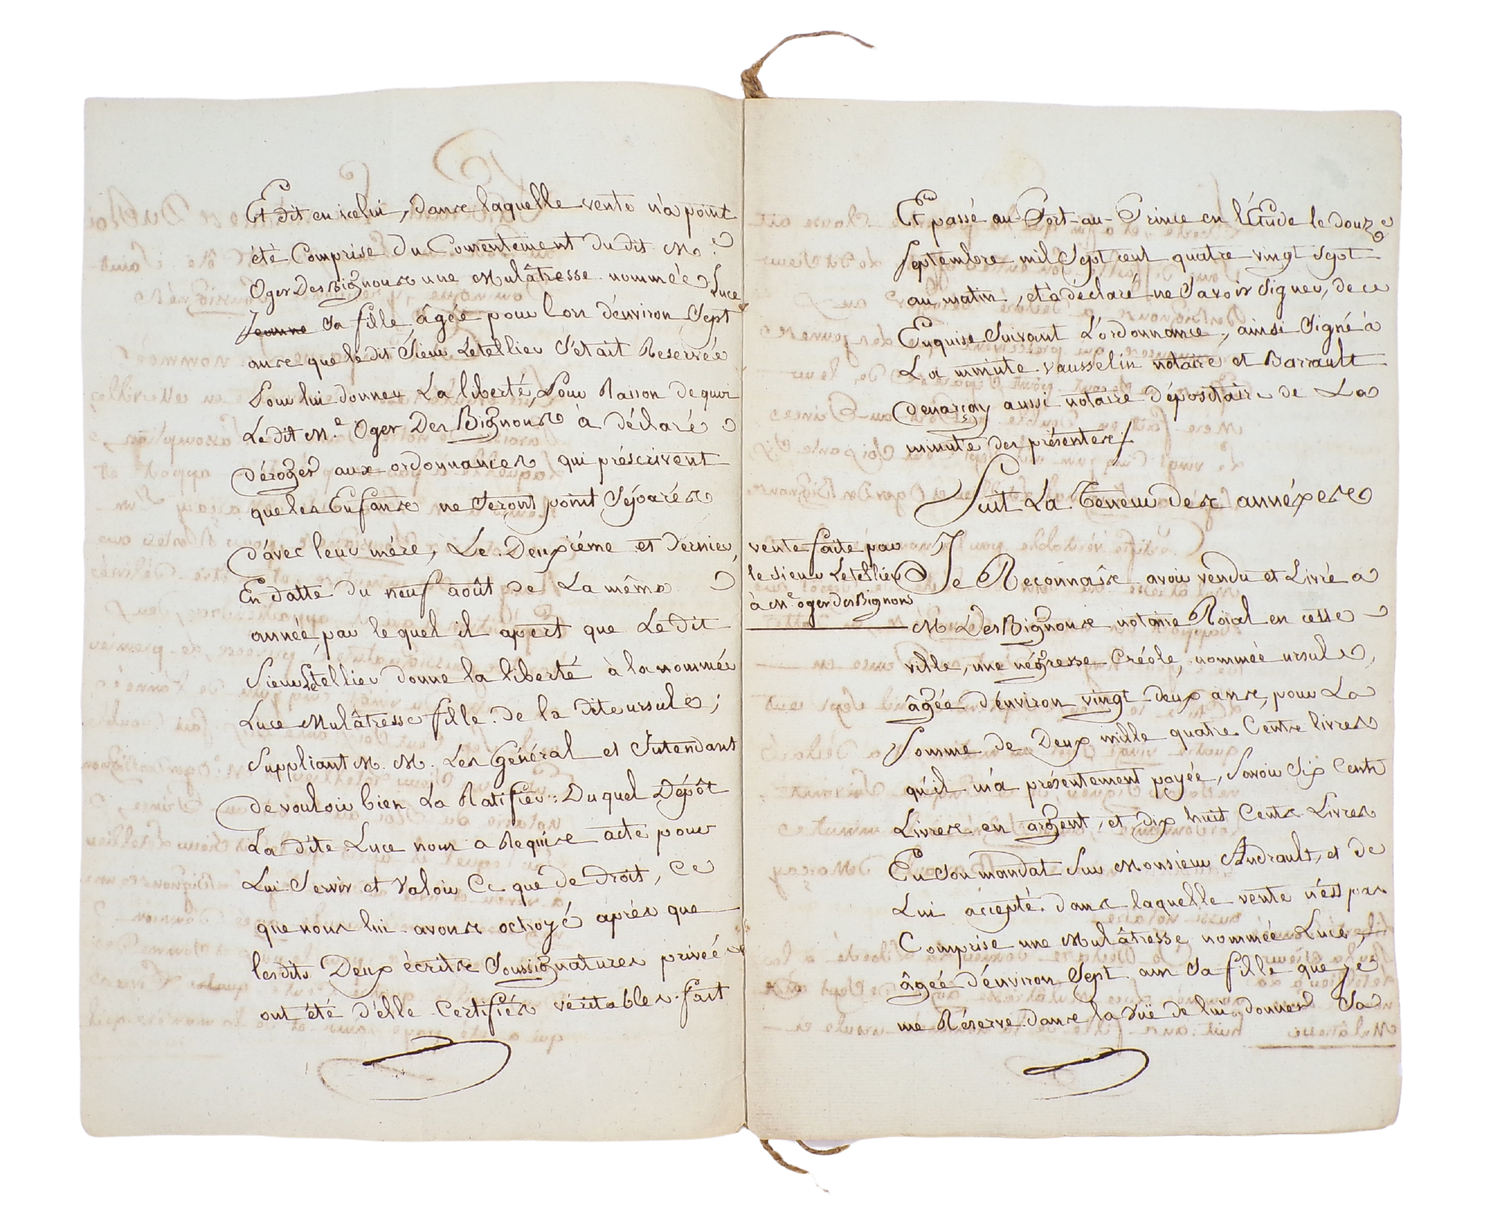 Et dit en icelui, dans laquelle vente n'a point
été Comprise du Consentement du dit M.e
Oger DesBignous une Mulâtresse nommée Luce
Jeanne sa fille, âgée pour lors d'environ Sept
ans que le dit Sieur Letellier S'etait Reservée
Pour lui donner La liberté, Pour Raison de quoi
Le dit M.e Oger Des Bignous à déclaré
déroger aux ordonnances qui préscrivent
que les Enfans ne Seront point Séparés
d'avec leur mére, Le Deuxiéme et dernier,
En datte du neuf août de La même
année, par le quel il apert que Le dit
Sieur Letellier donne la liberté à la nommée
Luce Mulâtresse fille de la dite ursule;
Suppliant M. M. Les Général et Intendant
de vouloir bien La Ratifier: Du quel Dépôt
La dite Luce nous a Requis acte pour
Lui Servir et Valoir Ce que de Droit, Ce
que nous lui avons octroyé aprés que
lesdits Deux écrits Soussignatures privée
ont été d'elle Certifiés véritables. fait
Et passé au Port-au-Prince en l'Étude le douze
Septembre mil Sept cent quatre vingt Sept
au matin, et a déclaré ne Savoir Signer, de ce
Enquise Suivant L'ordonnance, ainsi Signé à
La minute Vausselin notaire et Barrault
denarçay aussi notaire dépositaire de La
minute des présentes/
Suit La Teneur des annéxes
vente faite par
le sieur Letellier
à M.e oger desBignous
Je Reconnais avoir vendu et Livré a
M. DesBignous notaire Roial en cette
ville, une négresse Créole, nommée ursule,
âgée d'énviron vingt deux ans, pour La
Somme de Deux mille quatre Cents livres
qu'il m'a présentement payée, Savoir Six Cents
Livres en argent, et dix huit Cents Livres
En Son mandat Sur Monsieur Andrault, et de
Lui accepté. dans laquelle vente n'est pas
Comprise une Mulâtresse nommée Luce,
âgée d'énviron Sept ans Sa fille que je
me Réserve dans la Vüe de lui donner Sa